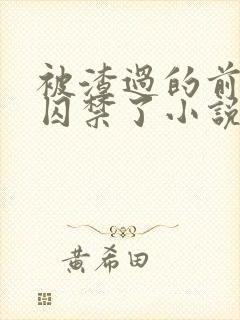 被渣過的前
囚禁了小說
黃希田